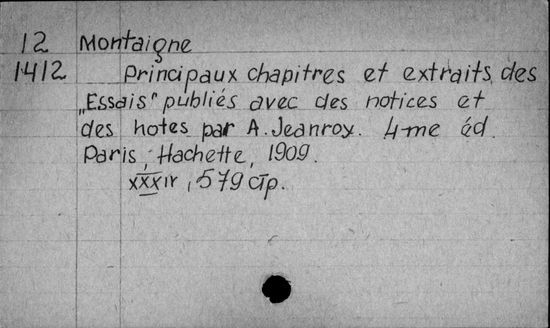 12 Montaigne
1412 Principaux chapitres et extraits des
„Essais" publiés avec des notices et
des notes par A. Jeanroy. 4-me éd.
Paris, Hachette, 1909.
XXXIV, 579 стр.